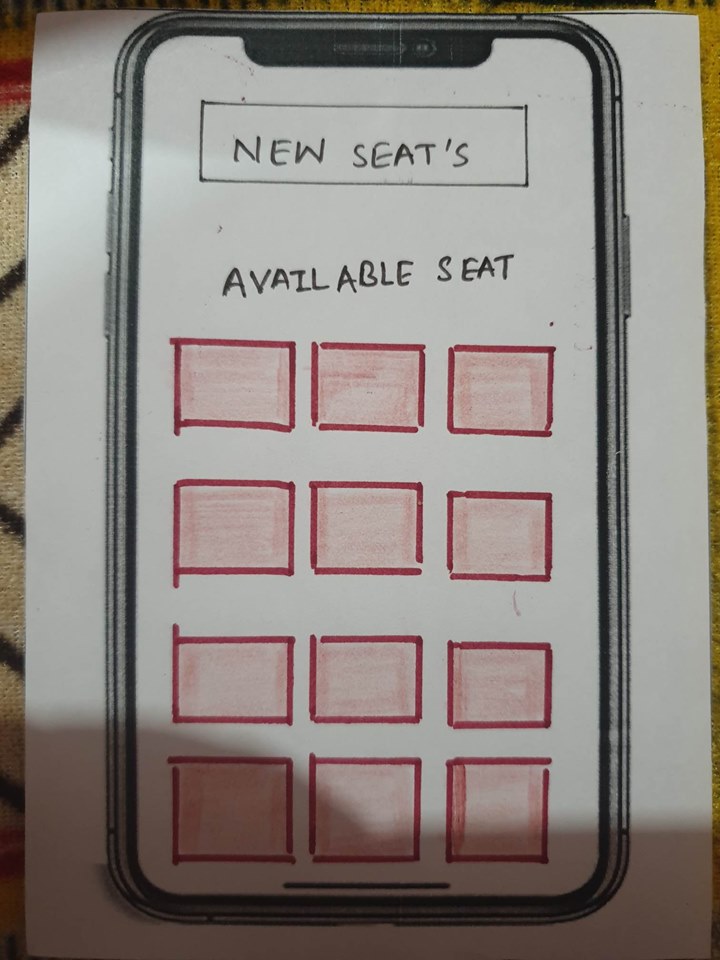 NEW SEAT'S
AVAILABLE SEAT